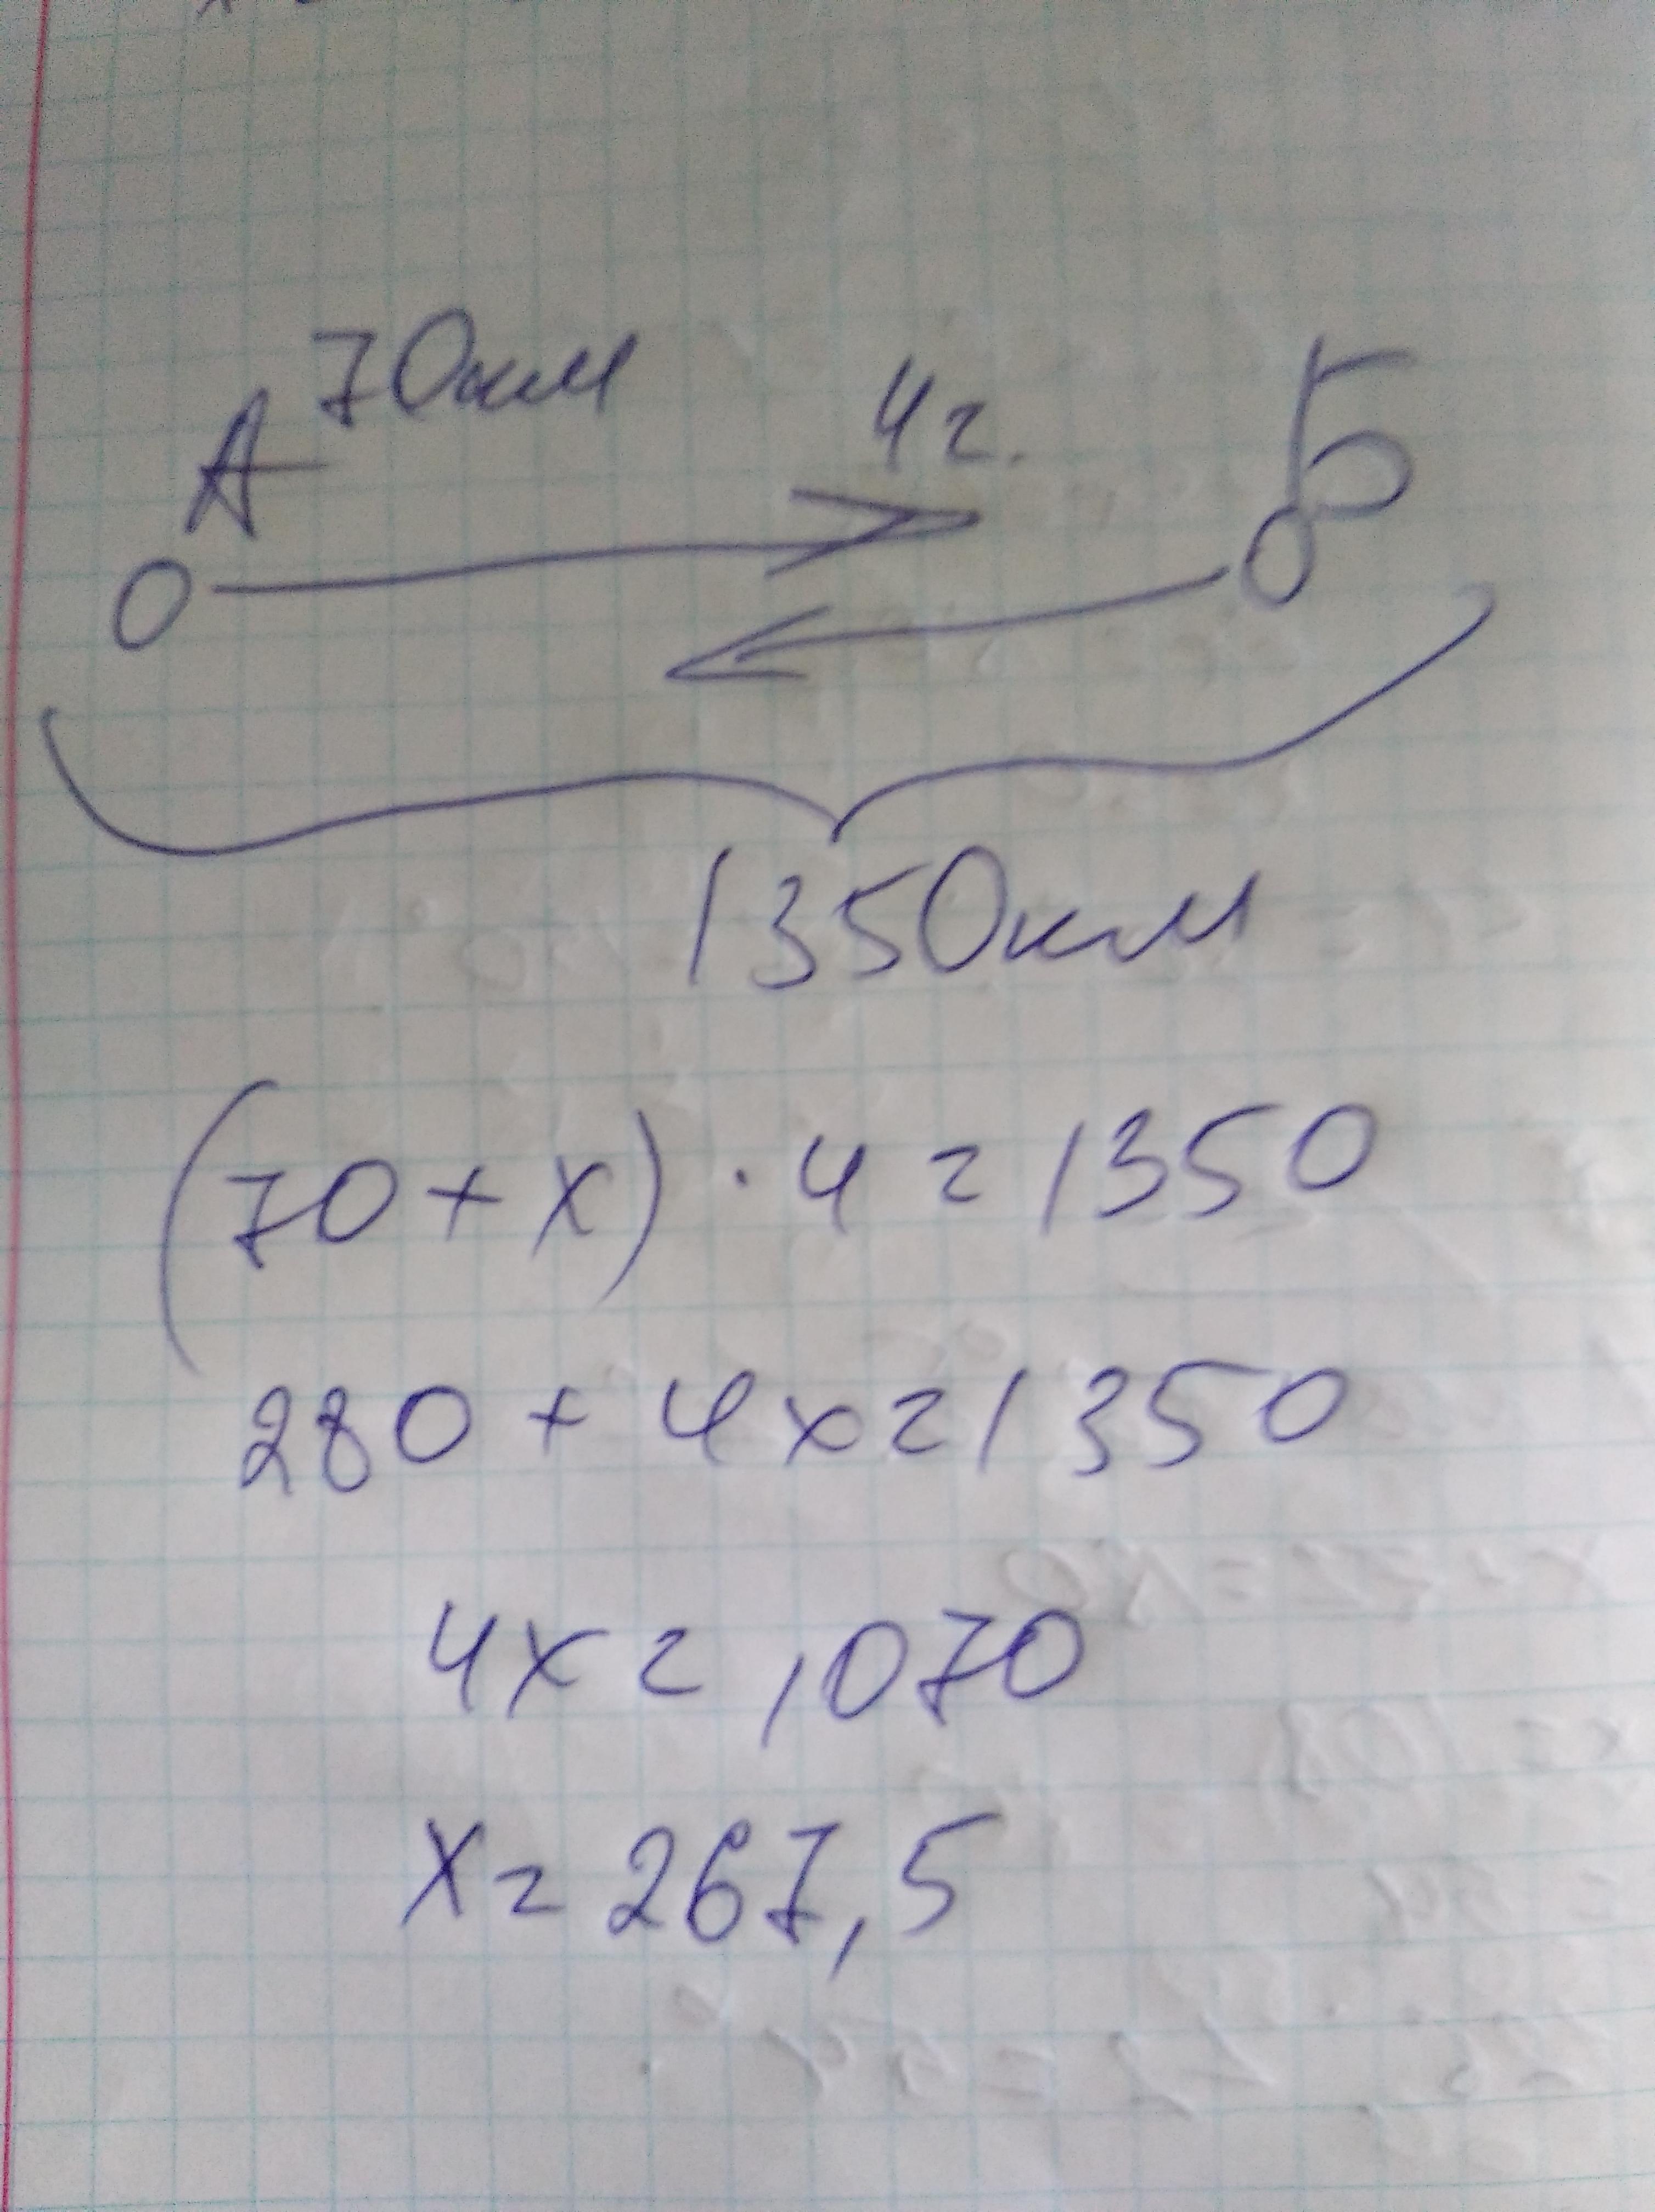 А 70км 4г. Б
1350км
(70 + x) · 4 = 1350
280 + 4x = 1350
4x = 1070
x = 267,5